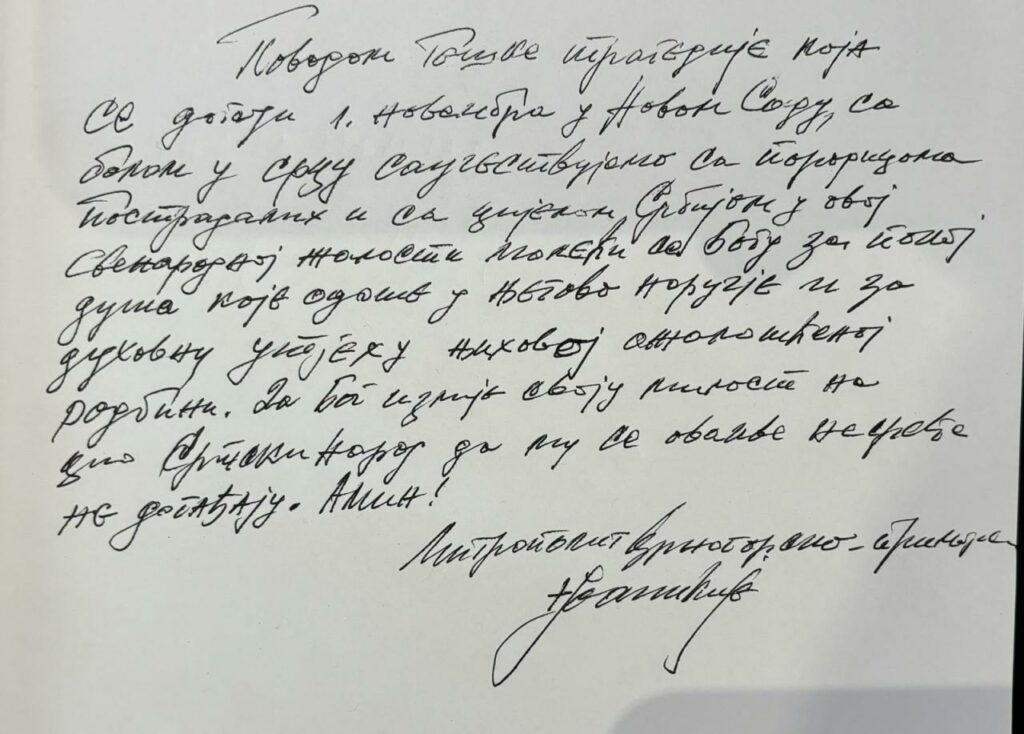 Поводом тешке трагедије која
се догоди 1. новембра у Новом Саду, са
болом у срцу саучествујемо са породицама
пострадалих и са цијелом Србијом у овој
свенародној жалости молећи се Богу за покој
душа које одоше у његово наручје и за
духовну утјеху њиховој ожалошћеној
родбини. Да Бог излије своју милост на
цио Српски народ да му се овакве несреће
не догађају. Амин!
Митрополит Црногорско-приморски
+Јоаникије